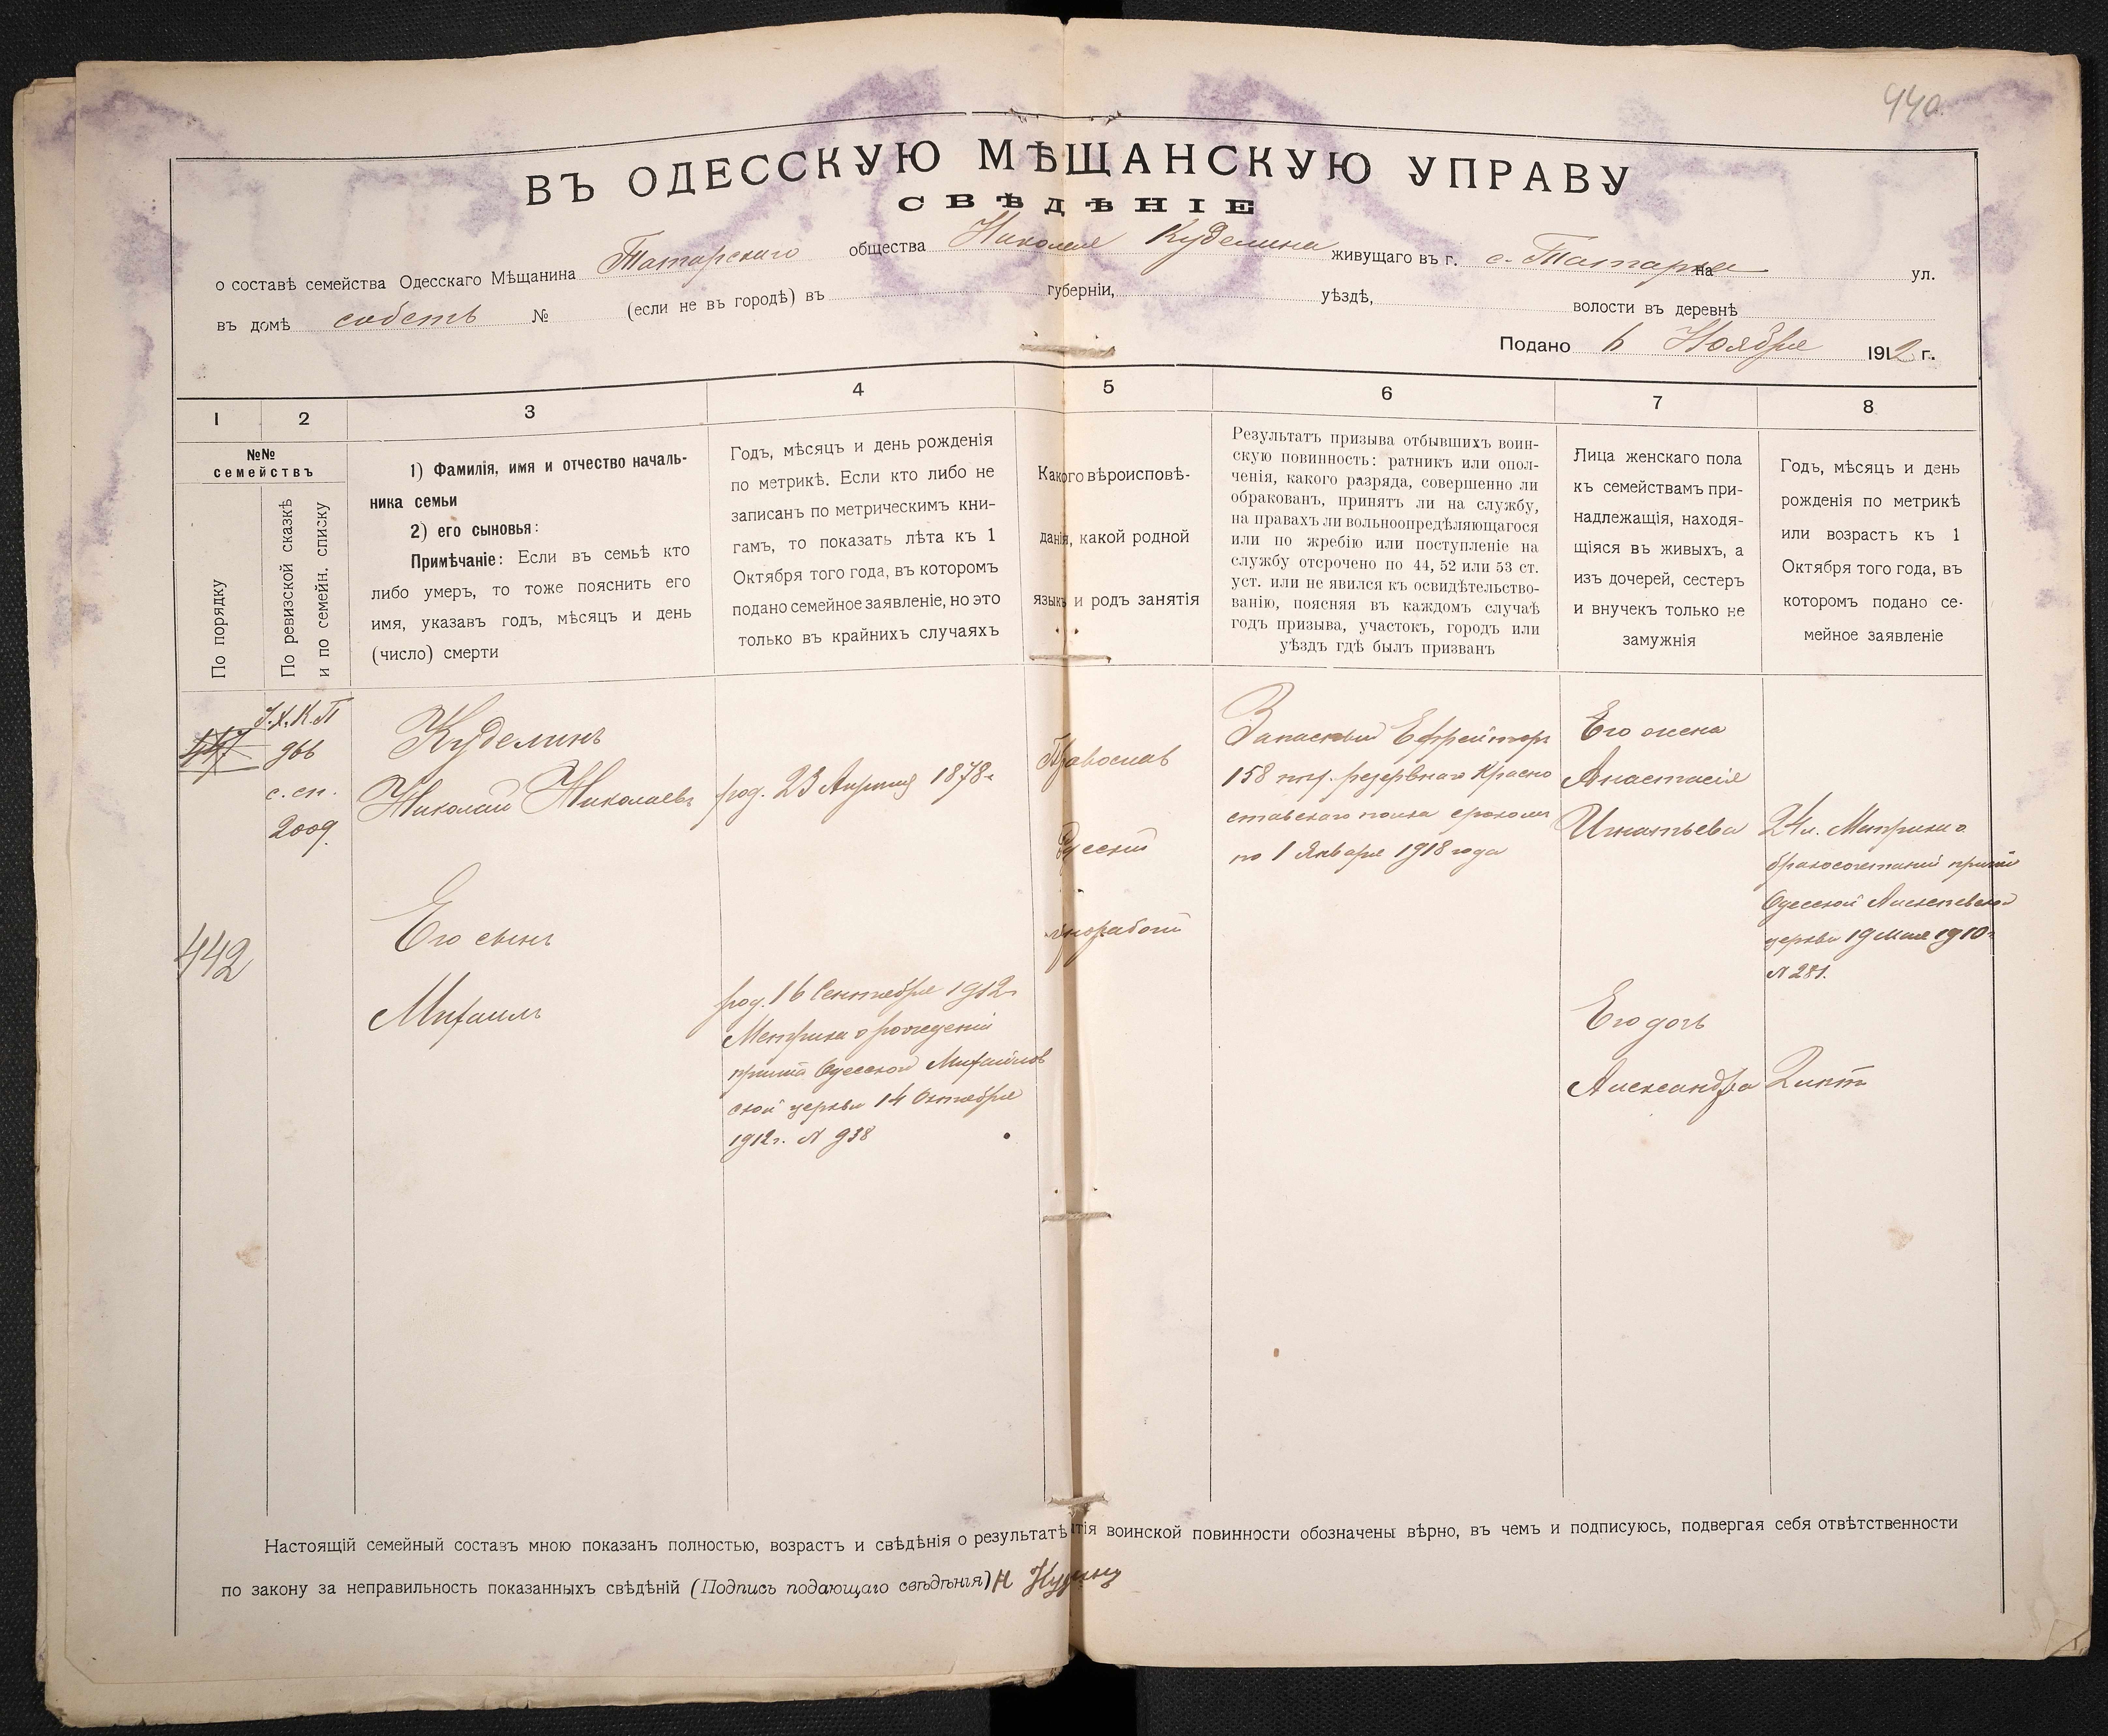 440.
ВЪ ОДЕССКУЮ МѢЩАНСКУЮ УПРАВУ
СВѢДѢНІЕ
о составѣ семейства Одесскаго Мѣщанина Татарскаго общества Николая Куделина живущаго въ г. с. Татарка на ул.
въ домѣ собств № (если не въ городѣ) въ губерніи, уѣздѣ, волости въ деревнѣ
Подано 6 Ноября 1912 г.
1 2 3 4 5 6 7 8
№№
семействъ
По порядку
По ревизской сказкѣ
и по семейн. списку
1) Фамилія, имя и отчество началь-
ника семьи
2) его сыновья:
Примѣчаніе: Если въ семьѣ кто
либо умеръ, то тоже пояснить его
имя, указавъ годъ, мѣсяцъ и день
(число) смерти
Годъ, мѣсяцъ и день рожденія
по метрикѣ. Если кто либо не
записанъ по метрическимъ кни-
гамъ, то показать лѣта къ 1
Октября того года, въ которомъ
подано семейное заявленіе, но это
только въ крайнихъ случаяхъ
Какого вѣроисповѣ-
данія, какой родной
языкъ и родъ занятія
Результатъ призыва отбывшихъ воин-
скую повинность: ратникъ или опол-
ченія, какого разряда, совершенно ли
обракованъ, принятъ ли на службу,
на правахъ ли вольноопредѣляющагося
или по жребію или поступленіе на
службу отсрочено по 44, 52 или 53 ст.
уст. или не явился къ освидѣтельство-
ванію, поясняя въ каждомъ случаѣ
годъ призыва, участокъ, городъ или
уѣздъ гдѣ былъ призванъ
Лица женскаго пола
къ семействамъ при-
надлежащія, находя-
щіяся въ живыхъ, а
изъ дочерей, сестеръ
и внучекъ только не
замужнія
Годъ, мѣсяцъ и день
рожденія по метрикѣ
или возрастъ къ 1
Октября того года, въ
которомъ подано се-
мейное заявленіе
966
с. сп.
2009.
442
Куделинъ
Николай Николаевъ
Его сынъ
Михаилъ
род. 23 Апреля 1878 г
род. 16 Сентября 1912 г
Метрика о рожденіи
причта Одесской Михайлов
ской церкви 14 Октября
1912 г. № 938
Православ
Русскій
Запасный Ефрейторъ
158 пех. резервнаго Красно
ставскаго полка срокомъ
по 1 Января 1918 года
Его жена
Анастасія
Игнатьева
Его дочь
Александра
24 л. Метрика о
бракосочетаніи причта
Одесской Алексеевской
церкви 19 Мая 1910 г
№ 281.
2 лѣтъ
Настоящій семейный составъ мною показанъ полностью, возрастъ и свѣдѣнія о результатѣ тія воинской повинности обозначены вѣрно, въ чемъ и подписуюсь, подвергая себя отвѣтственности
по закону за неправильность показанныхъ свѣдѣній (Подпись подающаго свѣдѣнія) Н